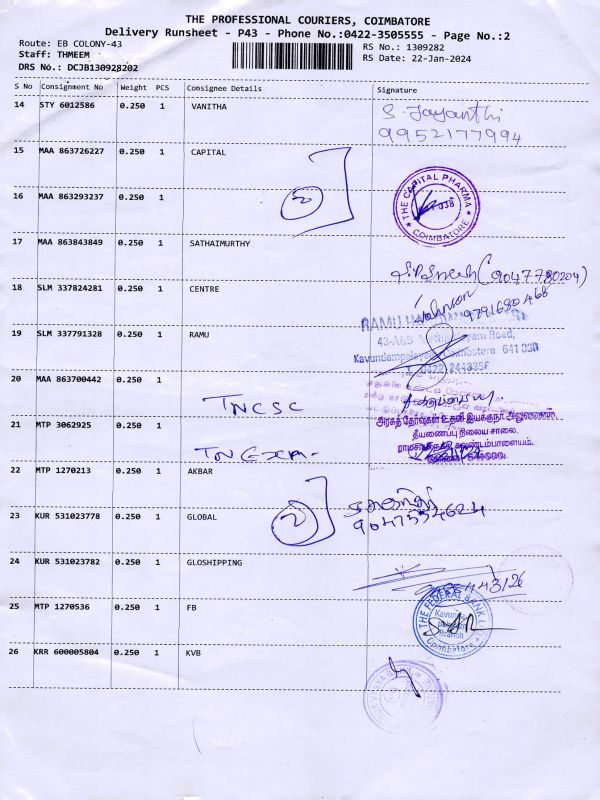 THE PROFESSIONAL COURIERS, COIMBATORE
Delivery Runsheet - P43 - Phone No.:0422-3505555 - Page No.:2
Route: EB COLONY-43
Staff: THMEEM
DRS No.: DCJB130928202
RS No.: 1309282
RS Date: 22-Jan-2024
S No Consignment No Weight PCS Consignee Details Signature
14 STY 6012586 0.250 1 VANITHA
S. Jayanthi
9952177994
15 MAA 863726227 0.250 1 CAPITAL
2
THE CAPITAL PHARMA
COIMBATORE
16 MAA 863293237 0.250 1
17 MAA 863843849 0.250 1 SATHAIMURTHY
(9047780204)
18 SLM 337824281 0.250 1 CENTRE
Johnson
9791680468
19 SLM 337791328 0.250 1 RAMU
RAMU
Road,
Kavundampalayam, Coimbatore 641 030
20 MAA 863700442 0.250 1
TNCSC
21 MTP 3062925 0.250 1
அரசுத் தேர்வுகள் உதவி இயக்குநர் அலுவலகம்,
தீயணைப்பு நிலைய சாலை,
கவுண்டம்பாளையம்,
TN Exam-
22 MTP 1270213 0.250 1 AKBAR
23 KUR 531023778 0.250 1 GLOBAL
2
9047554624
24 KUR 531023782 0.250 1 GLOSHIPPING
25 MTP 1270536 0.250 1 FB
THE FEDERAL BANK
Coimbatore
26 KRR 600005804 0.250 1 KVB